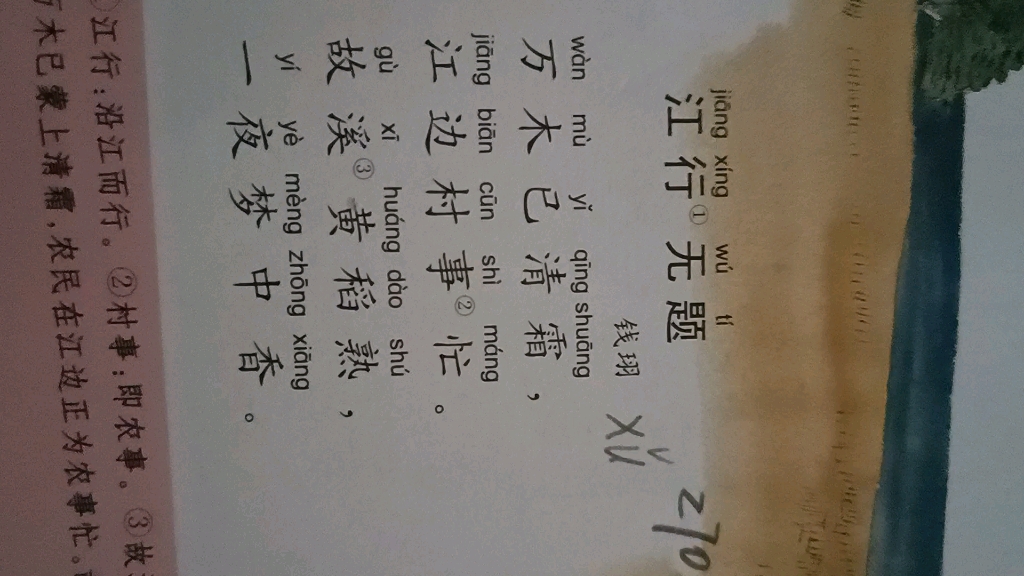 jiāng xíng wú tí
江行①无题
钱珝
xǔ
270
wàn mù yǐ qīng shuāng
万木已清霜，
jiāng biān cūn shì máng
江边村事②忙。
gù xī huáng dào shú
故溪③黄稻熟，
yí yè mèng zhōng xiāng
一夜梦中香。
江行：沿江而行。②村事：即农事。③故
木已蒙上清霜，农民在江边正为农事忙。